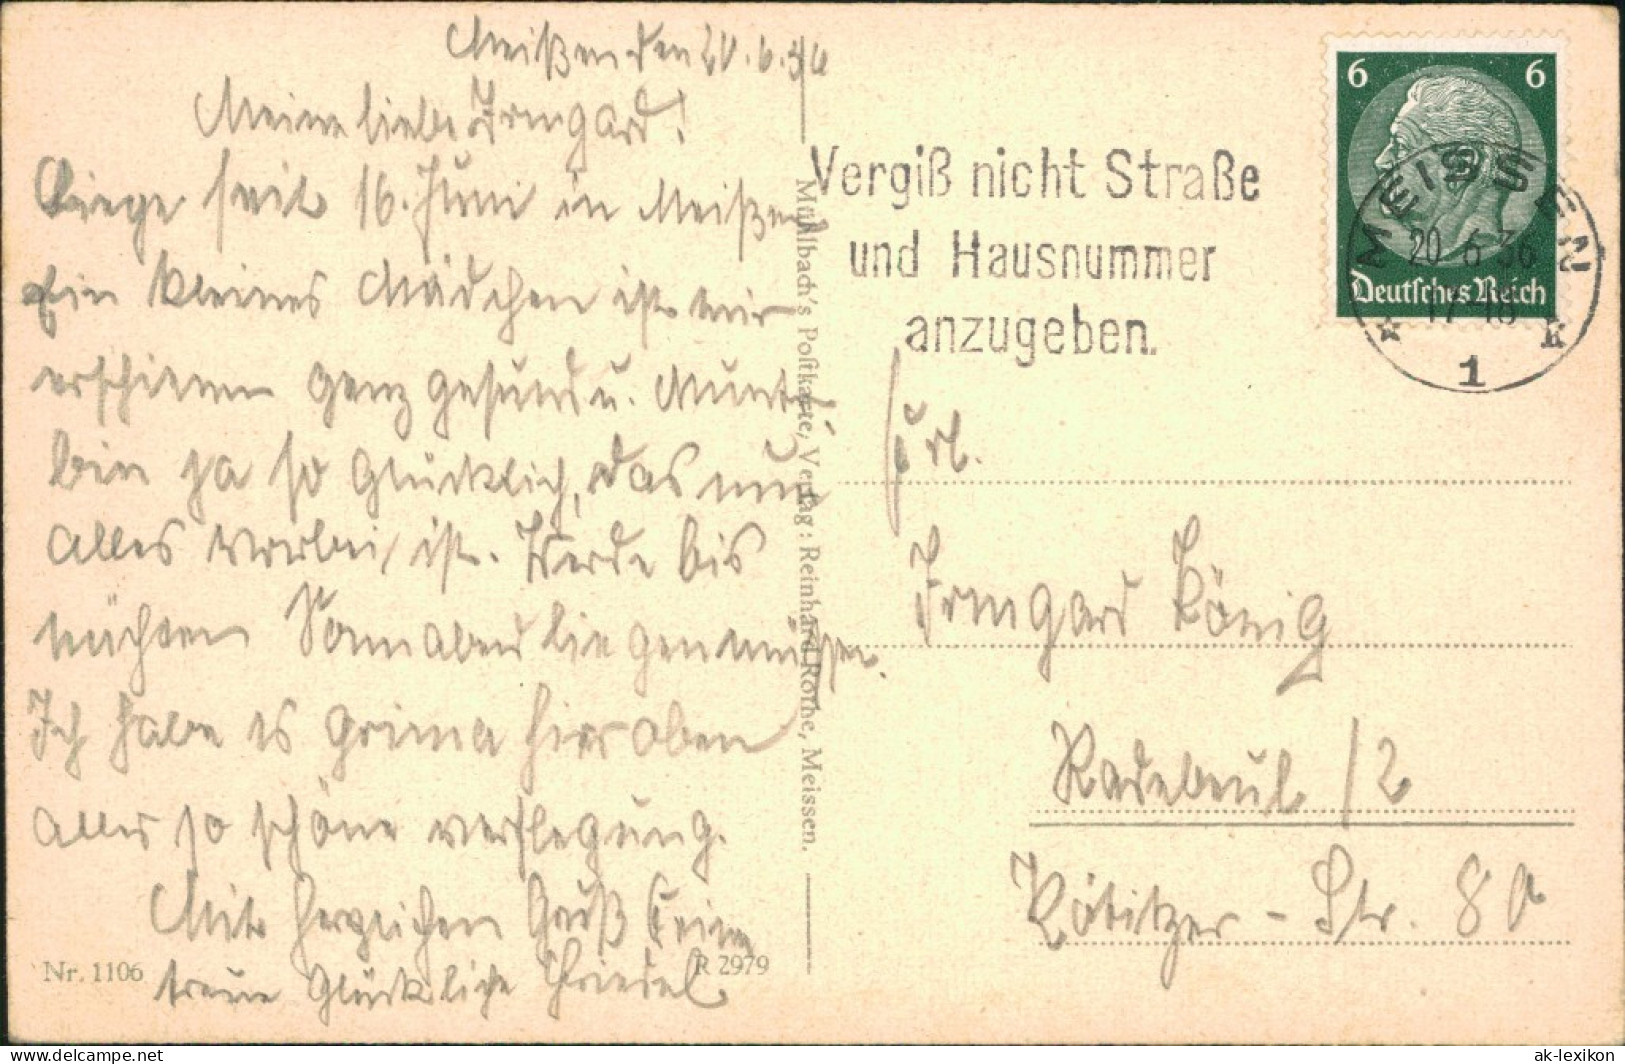 Meißen den 20.6.36
Meine liebe Irmgard!
Liege seit 16. Juni in Meißen
Ein kleines Mädchen ist mir
erschienen ganz gesund u. Munter
bin ja so glücklich, das nun
alles vorbei ist. Werde bis
nächsten Sonnabend liegen müssen.
Ich habe es prima hier oben
alles so schöne verflegung.
Mit herzlichen Gruß Deine
treue glückliche Friedel
Nr. 1106
R 2979
Mühlbach's Postkarte, Verlag: Reinhard Rothe, Meissen.
Vergiß nicht Straße
und Hausnummer
anzugeben.
6 6
Deutsches Reich
MEISSEN
20.6.36
17-18
1 k
Frl.
Irmgard König
Radebeul / 2
Kötitzer-Str. 8
www.ak-ansichtskarten.de
ak-lexikon